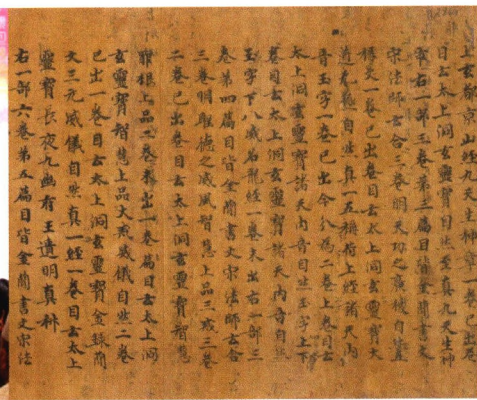 上玄都京山經九天生神章一卷已出卷
目云太上洞玄靈寶自然至真九天生神
章右一部三卷第三篇目皆金簡書文
宋法師云合三卷明天功之廣被自然
條文一卷已出卷目云太上洞玄靈寶大
道无極自然真一五稱符上經諸天內
音玉字一卷已出今分為二卷上卷目云
太上洞玄靈寶諸天內音自然玉字上下
卷目云太上洞玄靈寶諸天內音自然
玉字下八威召龍經一卷未出右一部三
卷第四篇目皆金簡書文宋法師云合
三卷明聖德之威風智慧上品三戒三卷
二卷已出卷目云太上洞玄靈寶智慧
罪根上品二卷未出一卷篇目云太上洞
玄靈寶智慧上品大戒威儀自然二卷
已出一卷目云太上洞玄靈寶金籙簡
文三元威儀自然真一經一卷目云太上
靈寶長夜九幽有王遺明真科
右一部六卷第五篇目皆金簡書文宋法